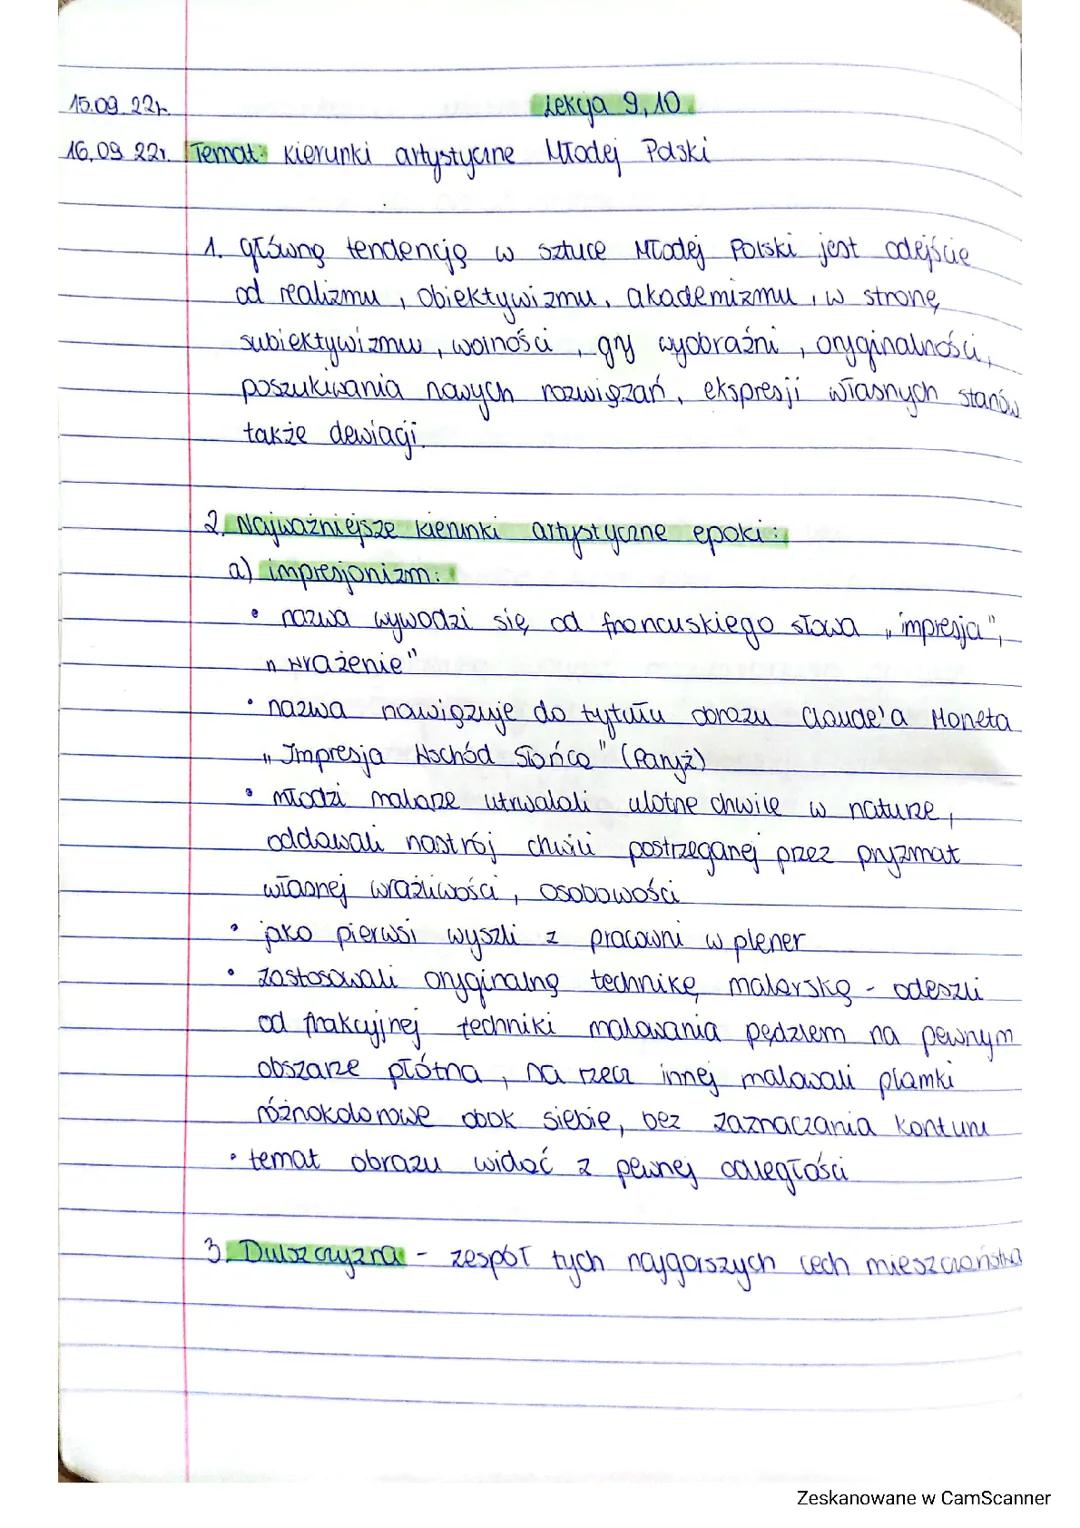 15.09.22r. Lekcja 9, 10.
16.09.22r. Temat: Kierunki artystyczne Młodej Polski
1. główną tendencją w sztuce Młodej Polski jest odejście
od realizmu, obiektywizmu, akademizmu, w stronę
subiektywizmu, wolności, gry wyobraźni, oryginalności,
poszukiwania nowych rozwiązań, ekspresji własnych stanów
także dewiacji.
2. Najważniejsze kierunki artystyczne epoki:
a) impresjonizm:
• nazwa wywodzi się od francuskiego słowa „impresja",
„wrażenie"
• nazwa nawiązuje do tytułu obrazu Claude'a Moneta
„Impresja Wschód Słońca" (Paryż)
• młodzi malarze utrwalali ulotne chwile w naturze,
oddawali nastrój chwili postrzeganej przez pryzmat
własnej wrażliwości, osobowości
• jako pierwsi wyszli z pracowni w plener
• zastosowali oryginalną technikę malarską - odeszli
od frakcyjnej techniki malowania pędzlem na pewnym
obszarze płótna, na rzecz innej malowali plamki
różnokolorowe obok siebie, bez zaznaczania konturu
• temat obrazu widać z pewnej odległości
3. Dulszczyzna - zespół tych najgorszych cech mieszczaństwa
Zeskanowane w CamScanner